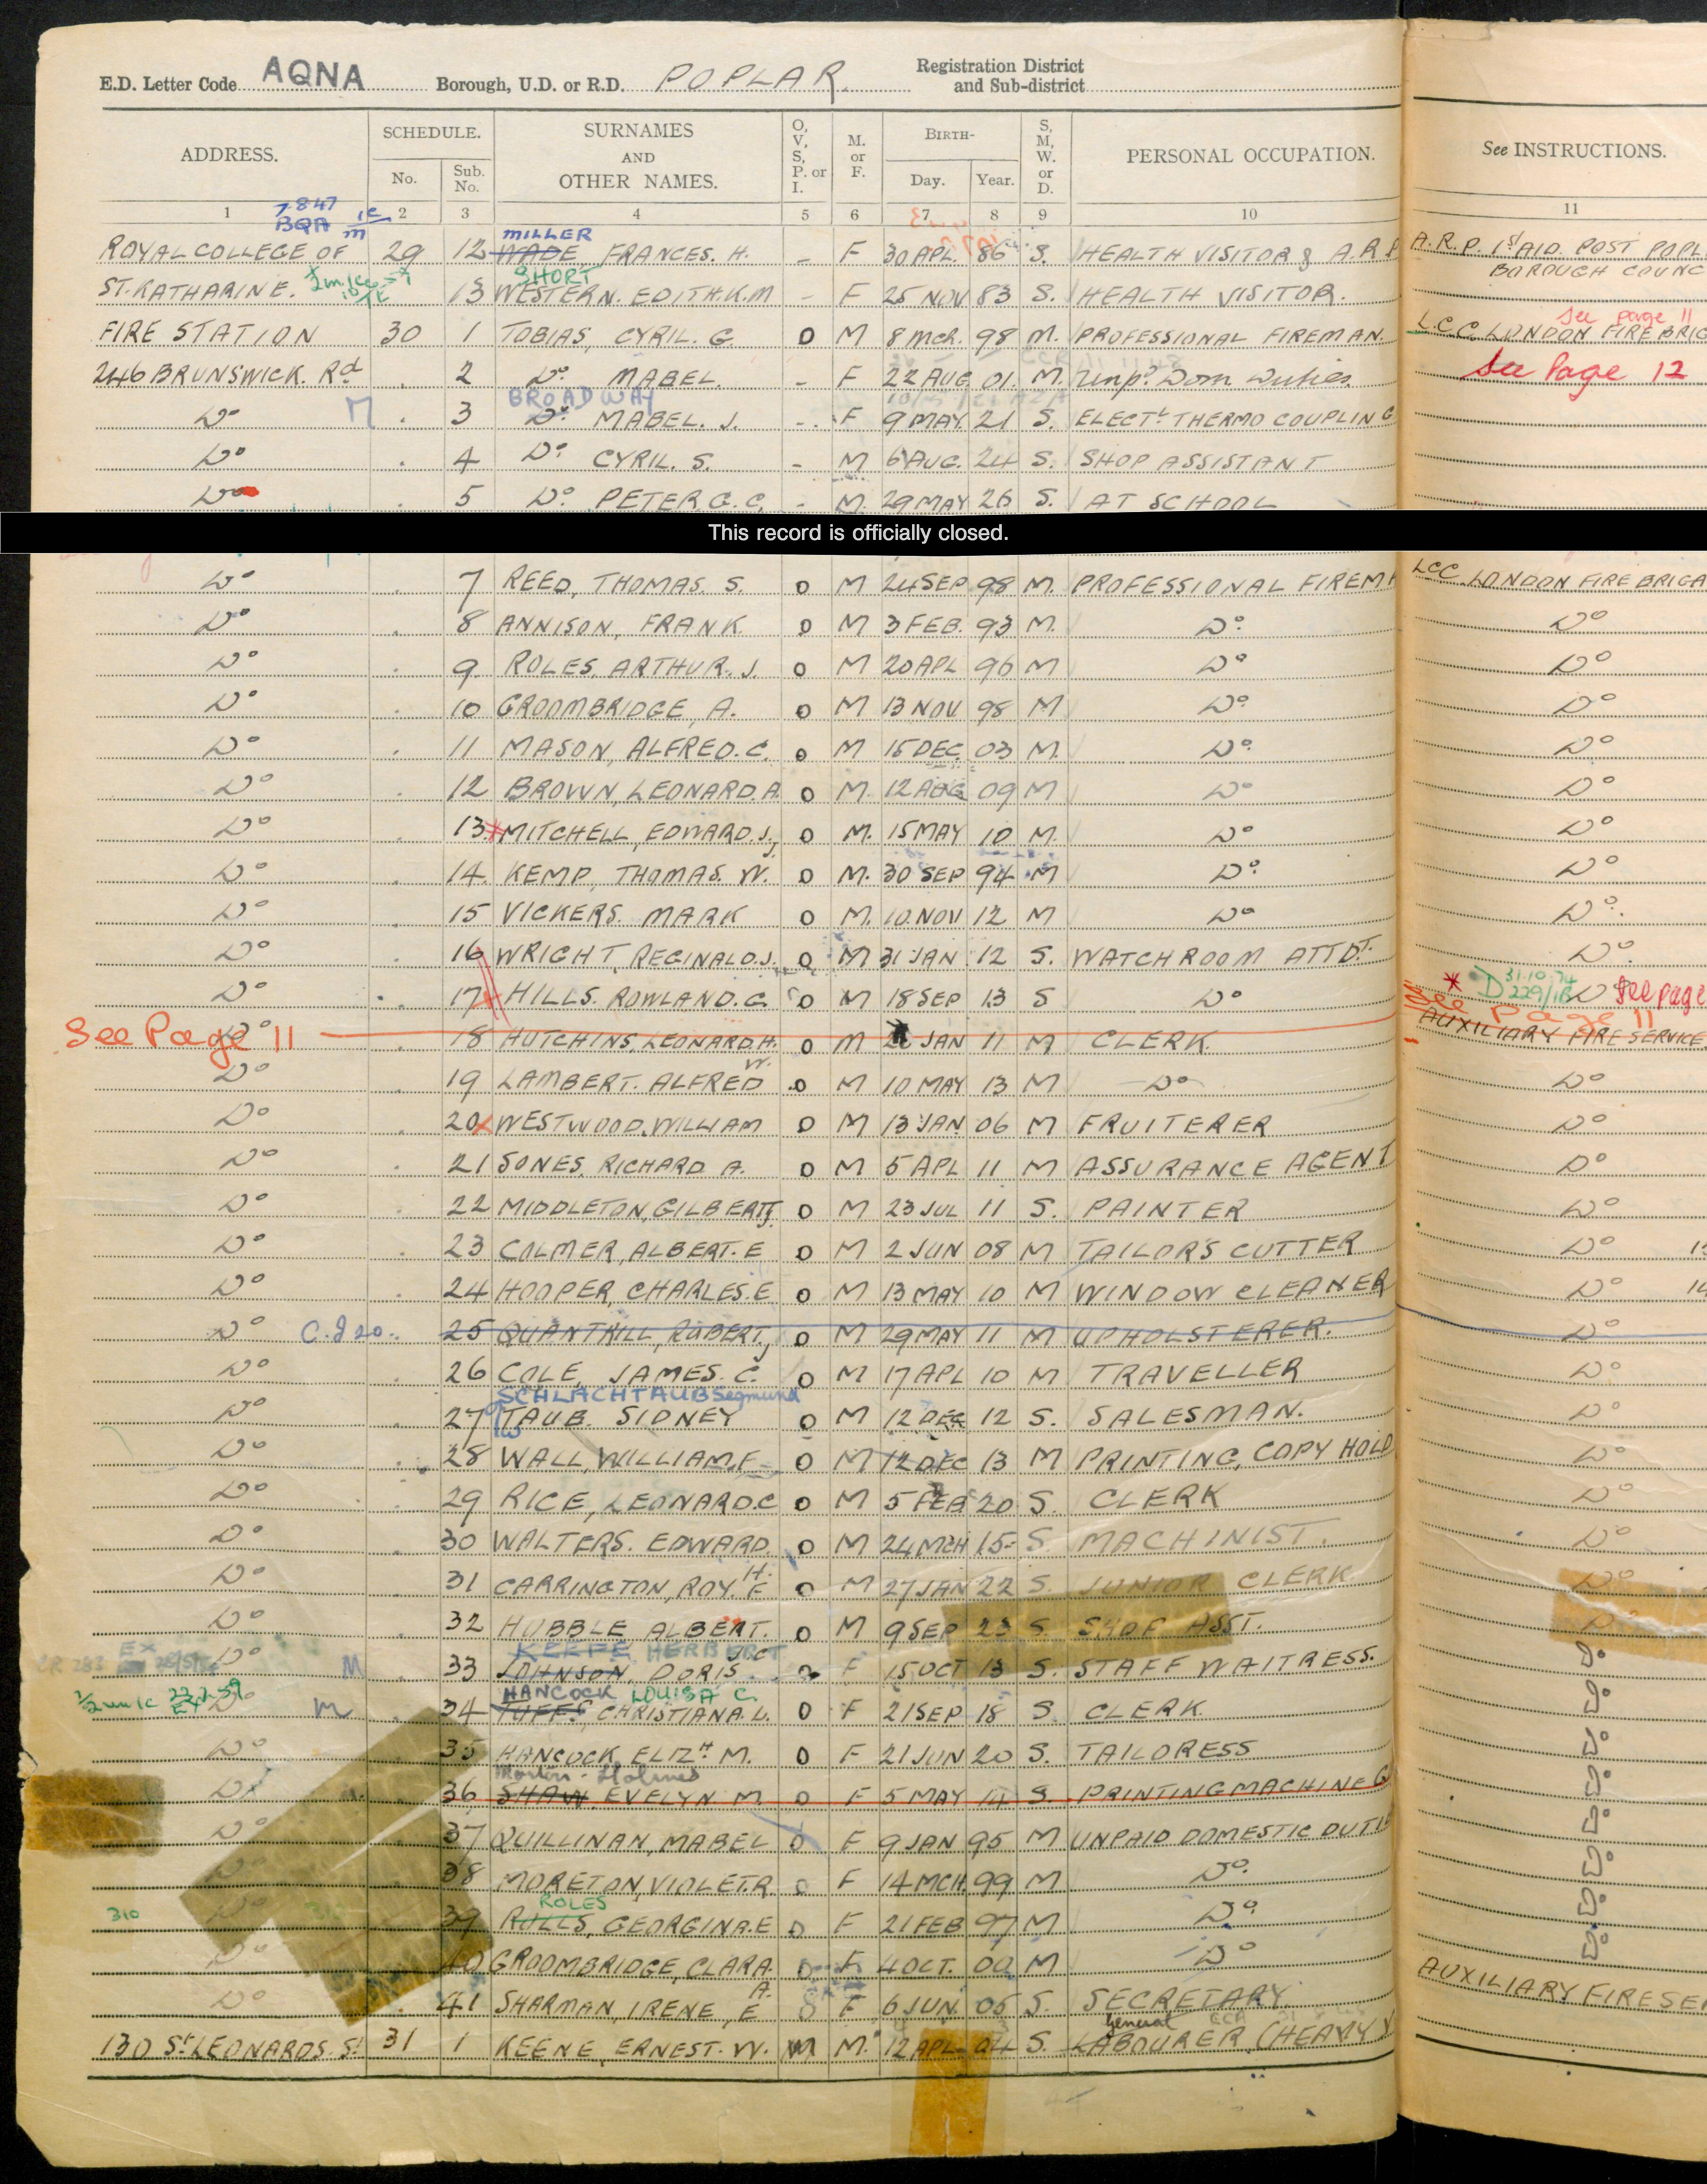 E.D. Letter Code AQNA Borough, U.D. or R.D. POPLAR. Registration District and Sub-district
ADDRESS. SCHEDULE. No. Sub. No. SURNAMES AND OTHER NAMES. O, V, S, P. or I. M. or F. BIRTH- Day. Year. S, M, W. or D. PERSONAL OCCUPATION. See INSTRUCTIONS.
1 2 3 4 5 6 7 8 9 10 11
7.8.47
BQA
MILLER
ROYAL COLLEGE OF 29 12 WADE, FRANCES. H. - F 30 APL. 86 S. HEALTH VISITOR & A.R.P A.R.P. 1st AID. POST POPL
BOROUGH COUNC
SHORT
ST. KATHARINE. 13 WESTERN. EDITH.K.M - F 25 NOV 83 S. HEALTH VISITOR.
see page 11
FIRE STATION 30 1 TOBIAS, CYRIL. G. O M 8 MCH. 98 M. PROFESSIONAL FIREMAN. L.C.C. LONDON FIRE BRIG
246 BRUNSWICK. Rd 2 Do MABEL. - F 22 AUG 01. M. Unpd Dom Duties. See Page 12
BROADWAY
Do M 3 Do MABEL. J. - F 9 MAY 21 S. ELECTL THERMO COUPLING
Do 4 Do CYRIL. S. - M 6 AUG. 24 S. SHOP ASSISTANT
Do 5 Do PETER G. C. - M. 29 MAY 26 S. AT SCHOOL
This record is officially closed.
Do 7 REED, THOMAS. S. O M 24 SEP 98 M. PROFESSIONAL FIREM LCC LONDON FIRE BRIGA
Do 8 ANNISON, FRANK O M 3 FEB. 93 M. Do Do
Do 9 ROLES, ARTHUR. J. O M 20 APL 96 M Do Do
Do 10 GROOMBRIDGE, A. O M 13 NOV 98 M Do Do
Do 11 MASON, ALFRED. C. O M 15 DEC. 03 M. Do Do
Do 12 BROWN, LEONARD. A. O M. 12 AUG 09 M Do Do
Do 13 MITCHELL, EDWARD. J. O M. 15 MAY 10 M. Do Do
Do 14. KEMP, THOMAS. W. O M. 30 SEP 94 M Do Do
Do 15 VICKERS. MARK O M. 10 NOV 12 M Do Do
Do 16 WRIGHT, REGINALD. J. O M 31 JAN 12 S. WATCHROOM ATTDT. Do
Do 17 HILLS. ROWLAND. G. O M 18 SEP 13 S Do D 31.10.74 229/1B Do See page
See Page 11
See Page 11 Do 18 HUTCHINS, LEONARD. H. O M JAN 11 M CLERK. AUXILIARY FIRE SERVICE
Do 19 LAMBERT. ALFRED W. O M 10 MAY 13 M Do Do
Do 20 WESTWOOD, WILLIAM O M 13 JAN 06 M FRUITERER Do
Do 21 SONES, RICHARD A. O M 5 APL 11 M ASSURANCE AGENT Do
Do 22 MIDDLETON, GILBERT J. O M 23 JUL 11 S. PAINTER Do
Do 23 COLMER, ALBERT. E O M 2 JUN 08 M TAILOR'S CUTTER Do
Do 24 HOOPER, CHARLES. E O M 13 MAY 10 M WINDOW CLEANER Do
Do 25 QUANTRILL, ROBERT. J O M 29 MAY 11 M UPHOLSTERER. Do
Do 26 COLE, JAMES. C. O M 17 APL 10 M TRAVELLER Do
SCHLACHTAUB Segmund
Do 27 TAUB. SIDNEY O M 12 DEC 12 S. SALESMAN. Do
Do 28 WALL, WILLIAM. F O M 12 DEC 13 M PRINTING, COPY HOLD Do
Do 29 RICE, LEONARD. C O M 5 FEB 20 S. CLERK Do
Do 30 WALTERS. EDWARD. O M 24 MCH 15 S. MACHINIST. Do
Do 31 CARRINGTON, ROY. H. F O M 27 JAN 22 S. JUNIOR CLERK Do
Do 32 HUBBLE ALBERT. O M 9 SEP 23 S. SHOP ASST. Do
KEEFE HERBERT
Do M 33 JOHNSON, DORIS. V.C. O F 15 OCT 13 S. STAFF WAITRESS. Do
HANCOCK LOUISA C.
Do m 34 TUFFS, CHRISTIANA. L. O F 21 SEP 18 S. CLERK. Do
Do 35 HANCOCK, ELIZH. M. O F 21 JUN 20 S. TAILORESS Do
Martin - Holmes
Do 36 SHAW, EVELYN M. O F 5 MAY 14 S. PRINTING MACHINE Do
Do 37 QUILLINAN, MABEL O F 9 JAN 95 M UNPAID DOMESTIC DUTI Do
Do 38 MORETON, VIOLET. R. O F 14 MCH. 99 M Do Do
ROLES
310 Do 39 ROLLS, GEORGINA. E O F 21 FEB 97 M Do Do
Do 40 GROOMBRIDGE, CLARA. F 4 OCT. 00 M Do Do
Do 41 SHARMAN, IRENE, A. E F 6 JUN. 05 S. SECRETARY AUXILIARY FIRE SE
general
130 St LEONARDS. St 31 1 KEENE, ERNEST. W. M M. 12 APL 04 S. LABOURER (HEAVY